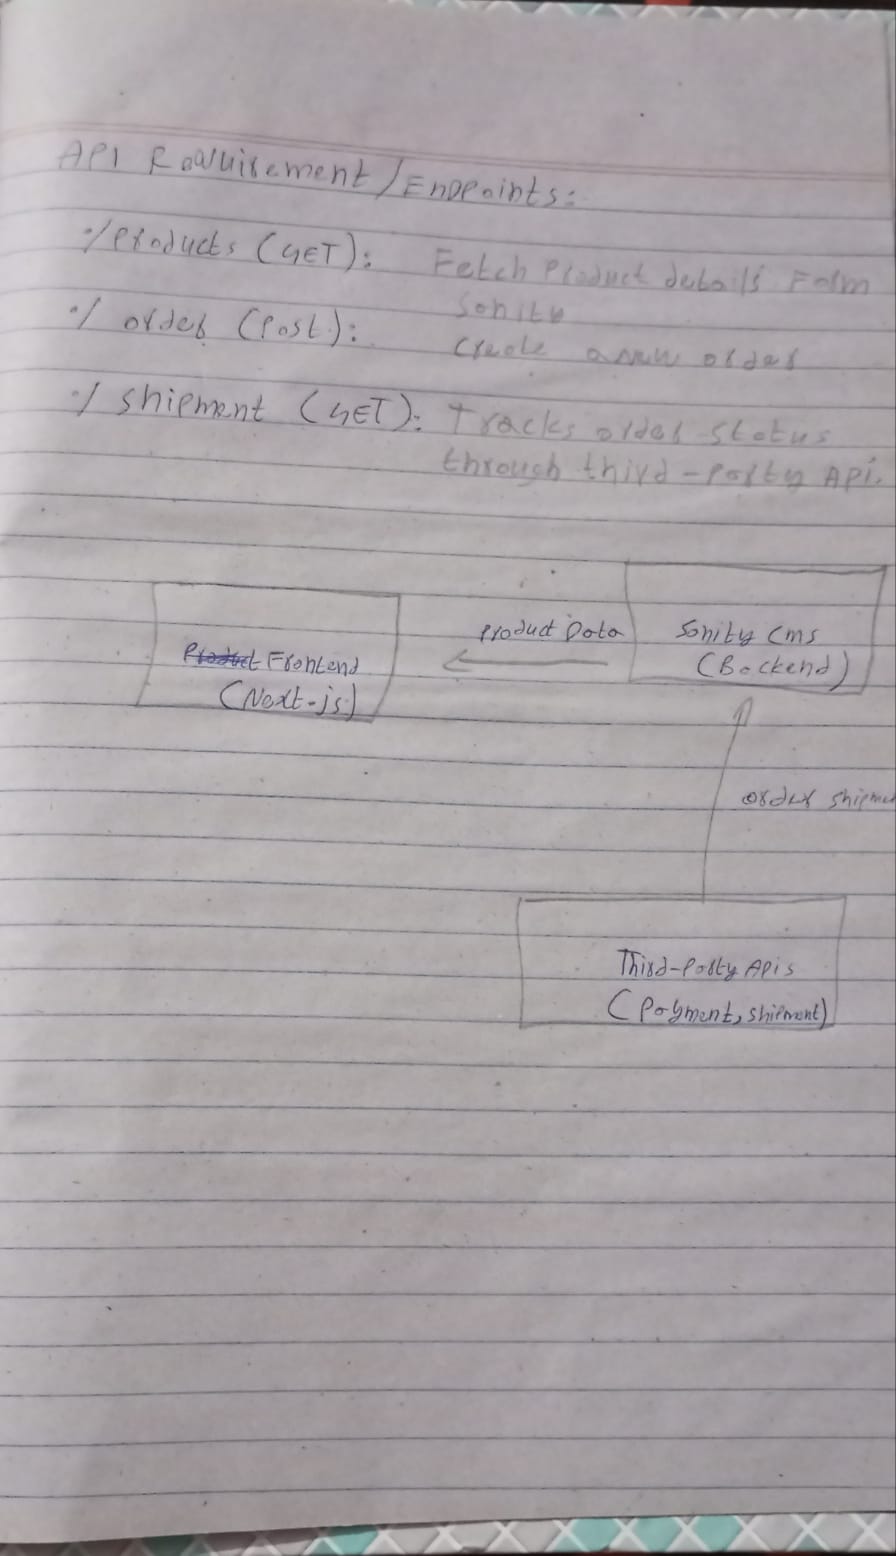 API Requirement/Endpoints:
·/Products (GET): Fetch Product details Form
Sanity
·/ order (Post): Create a new order
·/ Shipment (GET): Tracks order status
through third-Party API.
Product Data
Sanity Cms
(Backend)
Product Frontend
(Next-js)
order shipme
Third-Party Apis
(Payment, shipment)